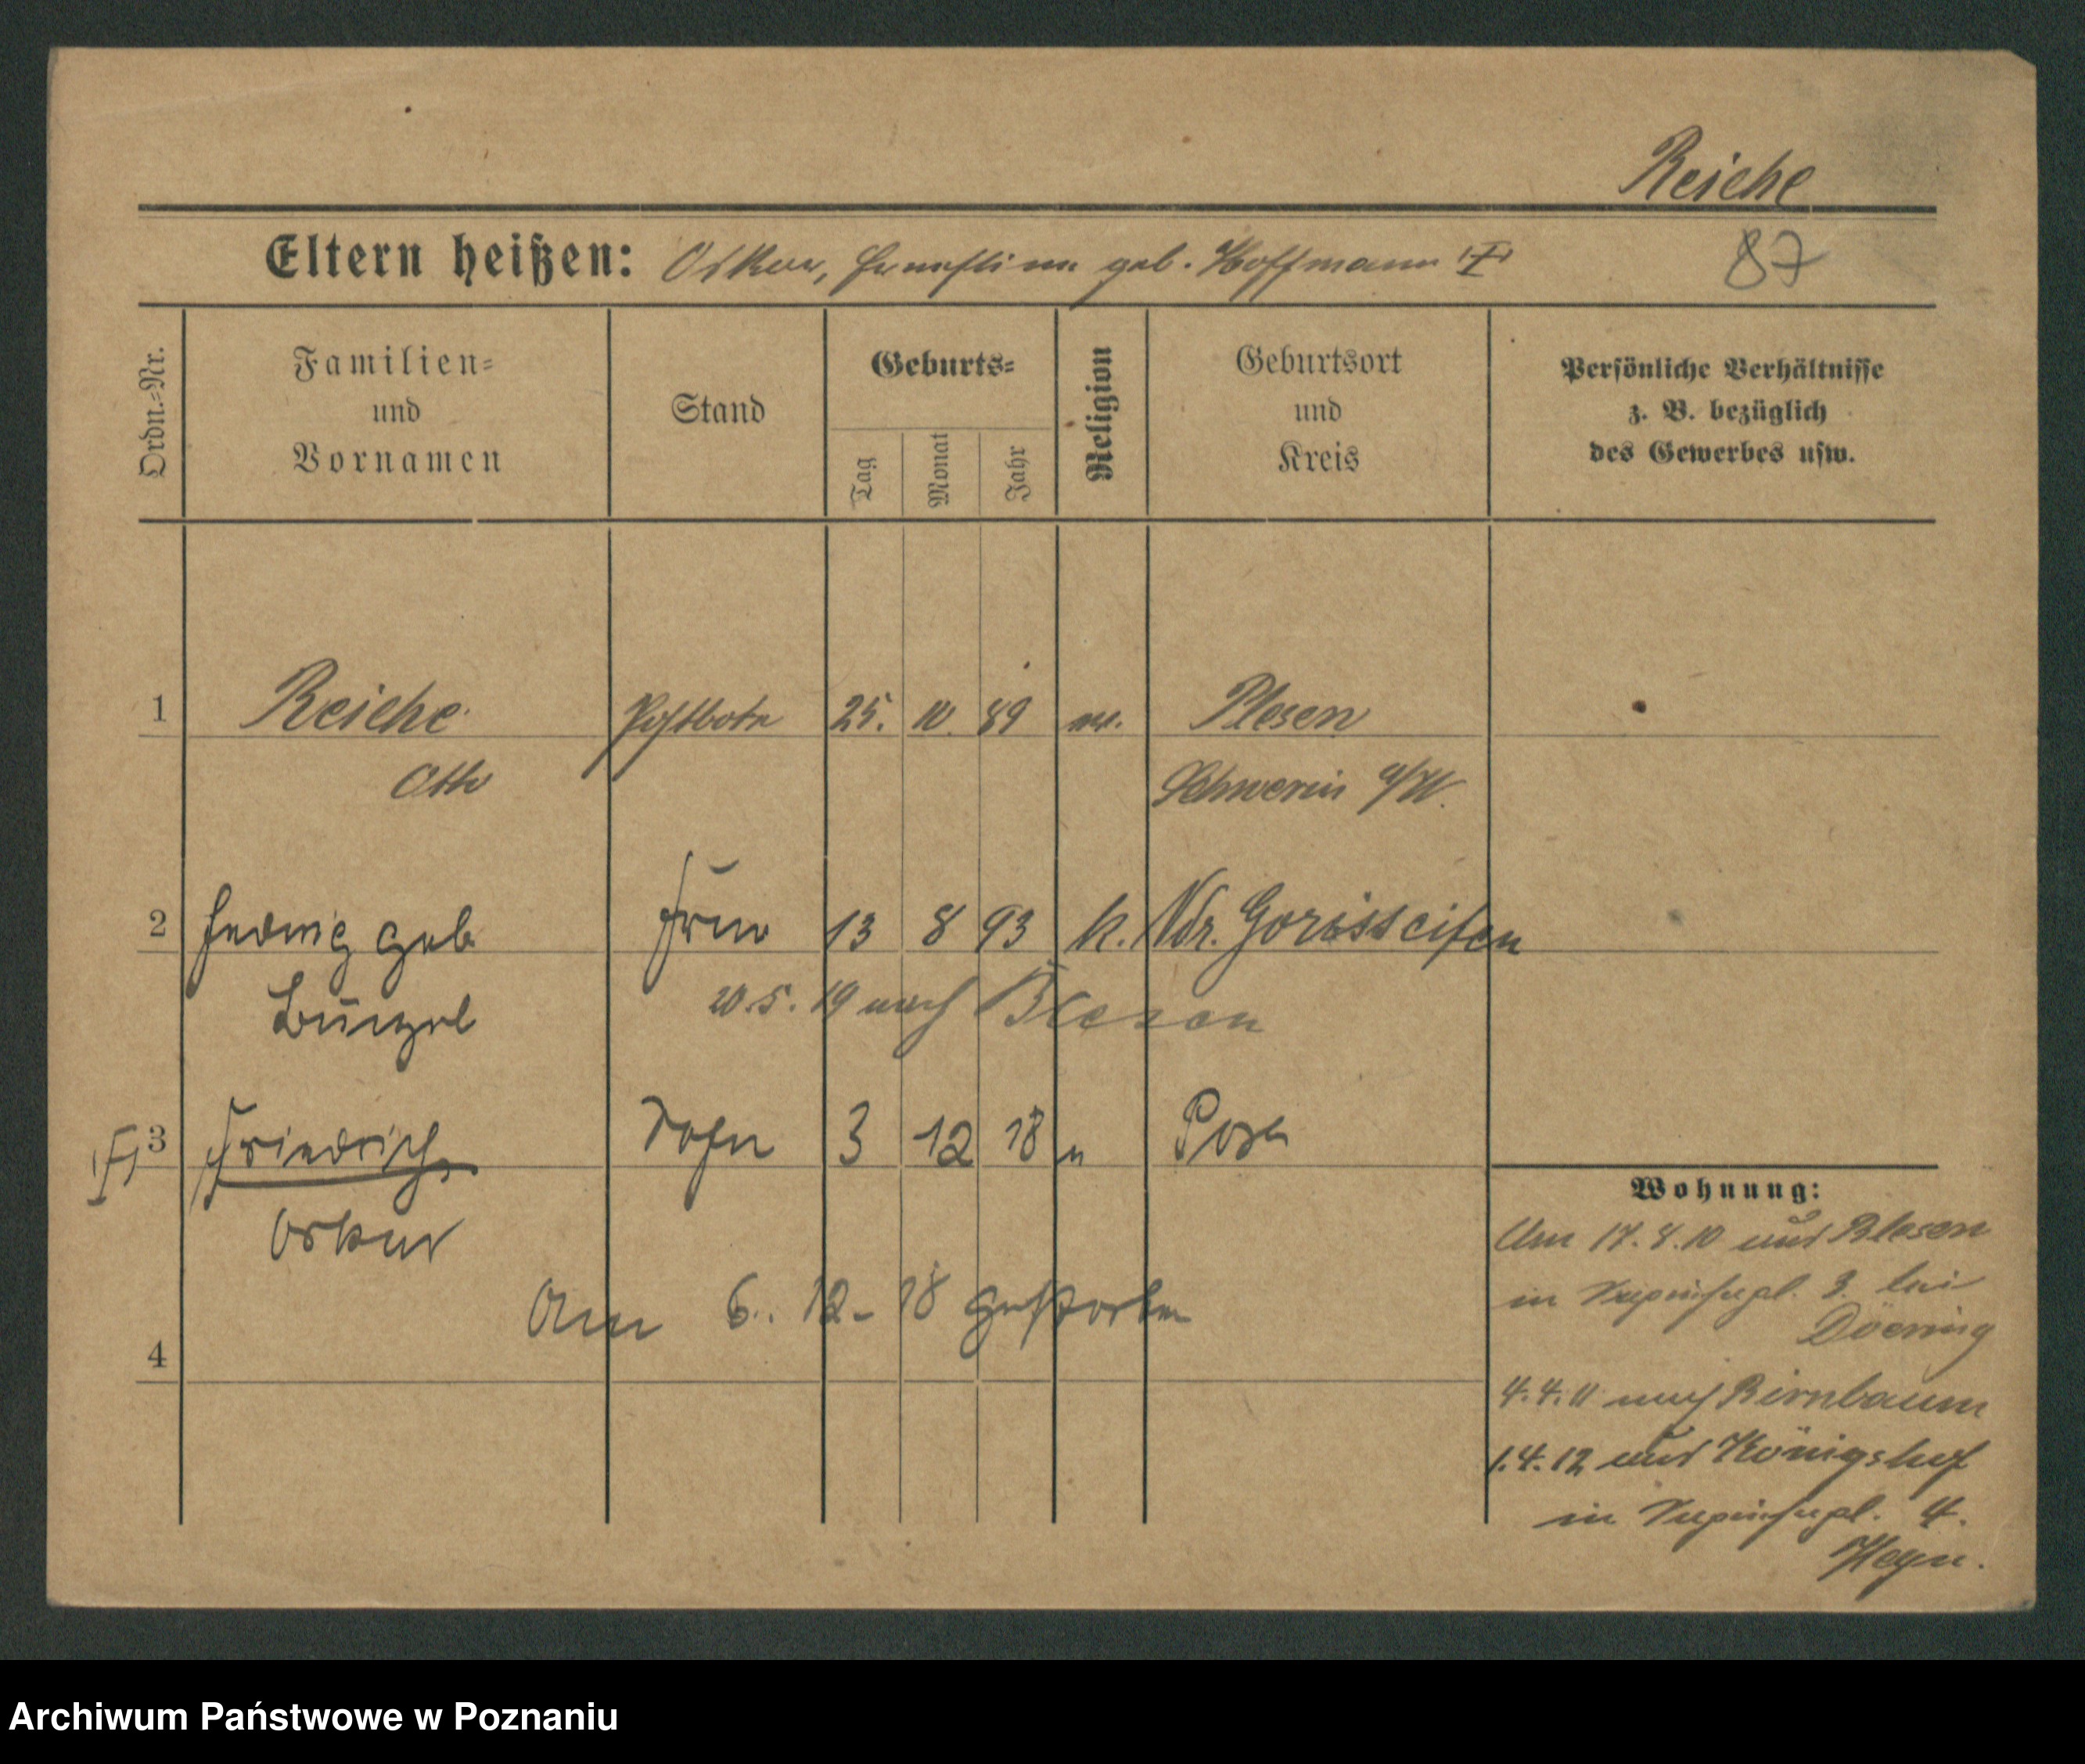 Reiche
Eltern heißen: Oskar, Ernestine geb. Hoffmann
87
Ordn.-Nr.
Familien-
und
Vornamen
Stand
Geburts-
Tag
Monat
Jahr
Religion
Geburtsort
und
Kreis
Persönliche Verhältnisse
z. B. bezüglich
des Gewerbes usw.
1 Reiche Postbote 25. 10. 89 Blesen
Otto Schwerin a/W.
2 Hedwig geb Frau 13 8 93 k. Ndr. Görisseifen
20.5.19 nach Blesen
3 Friedrich Sohn 3 12 18 Posen
Oskar
Am 6. 12. 18 gestorben
4
Wohnung:
Am 17.8.10 aus Blesen
in 3. bei
Döering
4.4.11 nach Birnbaum
1.4.12 aus Königshof
in 4.
Heyn.
Archiwum Państwowe w Poznaniu